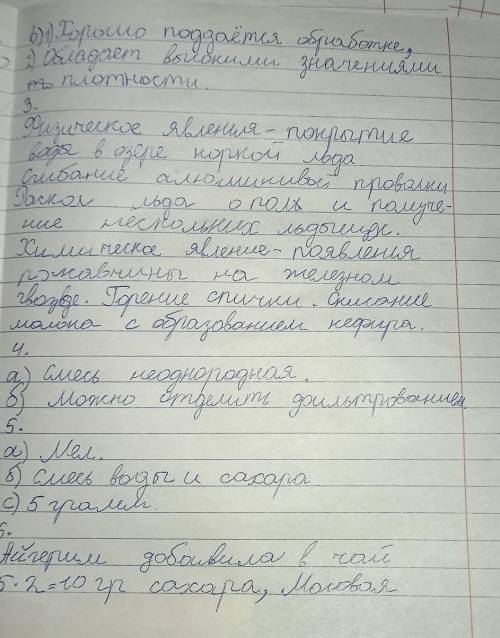 b) 1) Хорошо поддаётся обработке,
2) Обладает высокими значениями
плотности.
3.
Физическое явления - покрытие
воды в озере коркой льда
Сгибание алюминивой проволки
Раскол льда о пол и получе-
ние нескольких льдышек.
Химическое явление - появления
ржавчины на железном
гвозде. Горение спички. Скисание
молока с образованием кефира.
4.
а) Смесь неоднородная.
б) Можно отделить фильтрованием.
5.
а) Мел.
б) Смесь воды и сахара
с) 5 грамм.
6.
Айгерим добавила в чай
5·2=10 гр сахара, Массовая